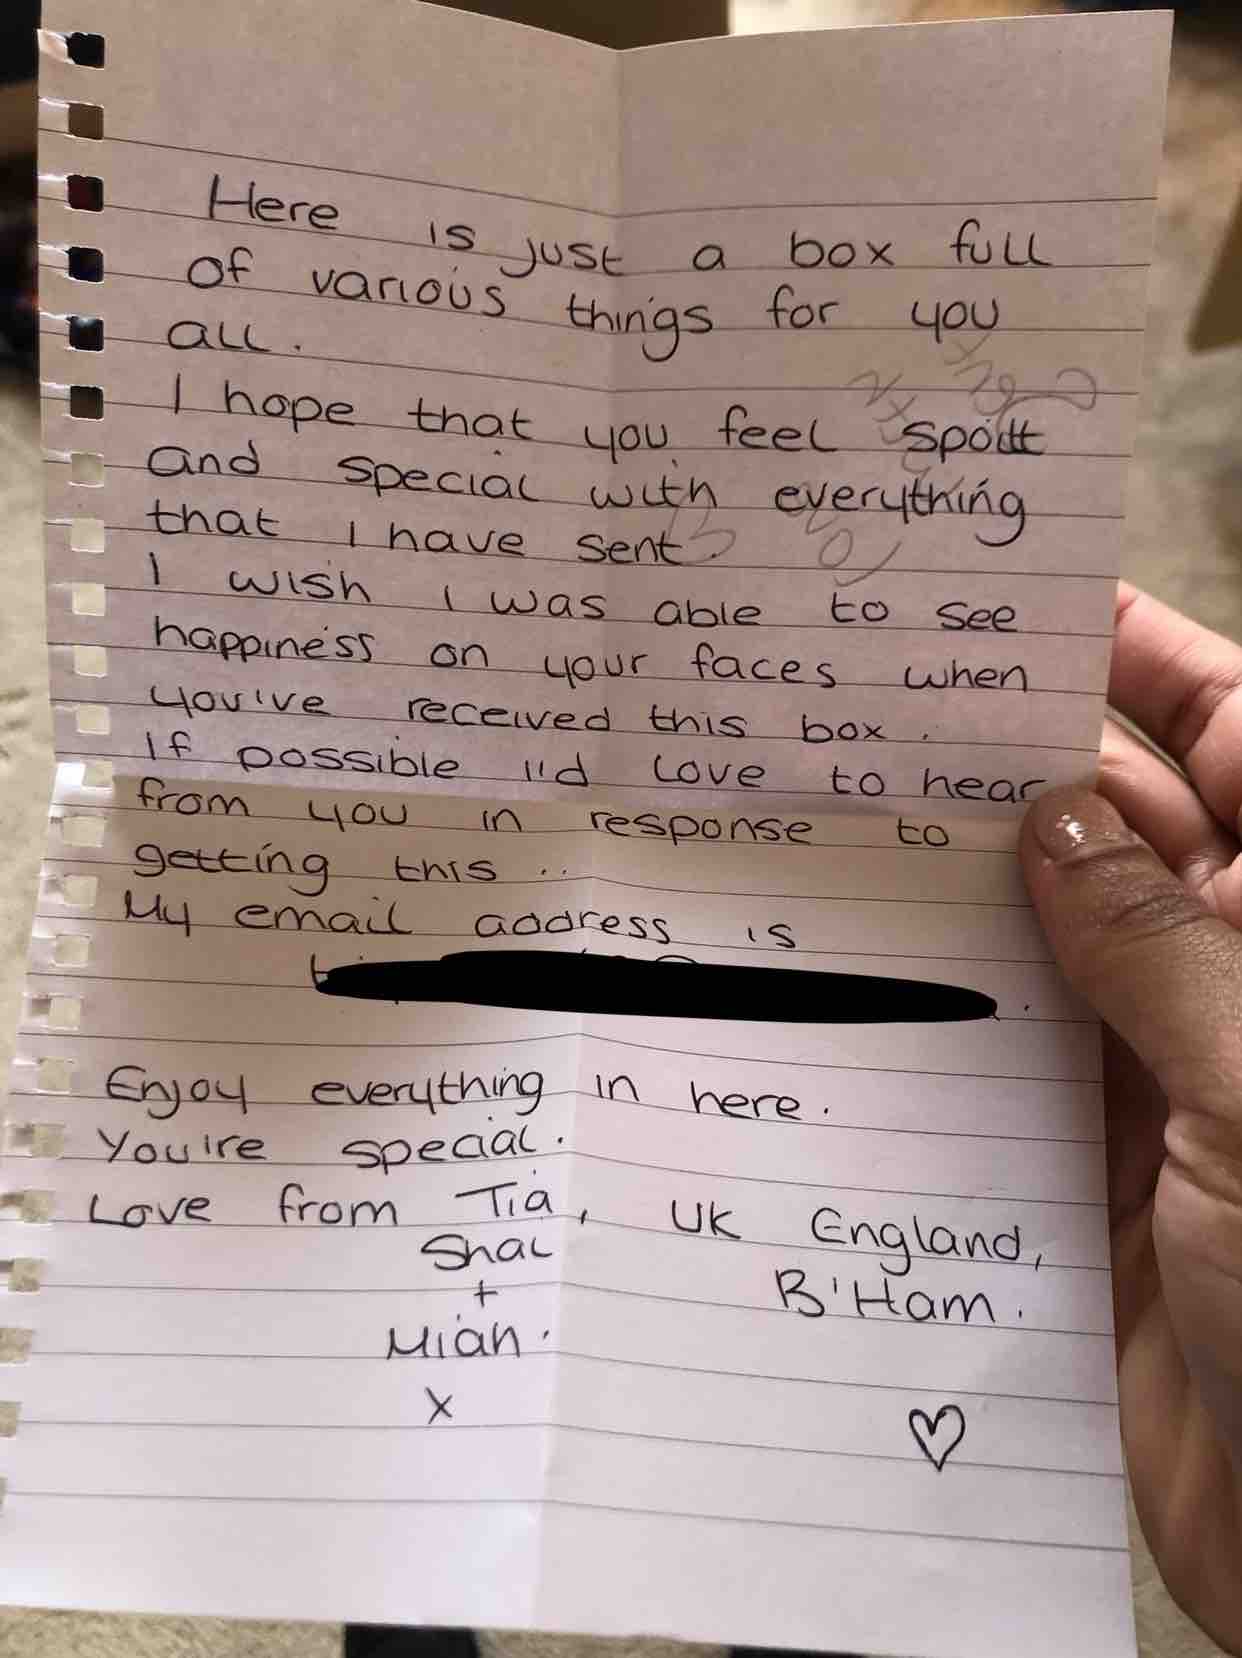 Here is just a box full
of various things for you
all.
I hope that you feel spoilt
and special with everything
that I have sent.
I wish I was able to see
happiness on your faces when
you've received this box.
If possible I'd love to hear
from you in response to
getting this ..
My email address is
Enjoy everything in here.
You're special.
Love from Tia, UK England,
Shal B'Ham.
+
Mian.
x